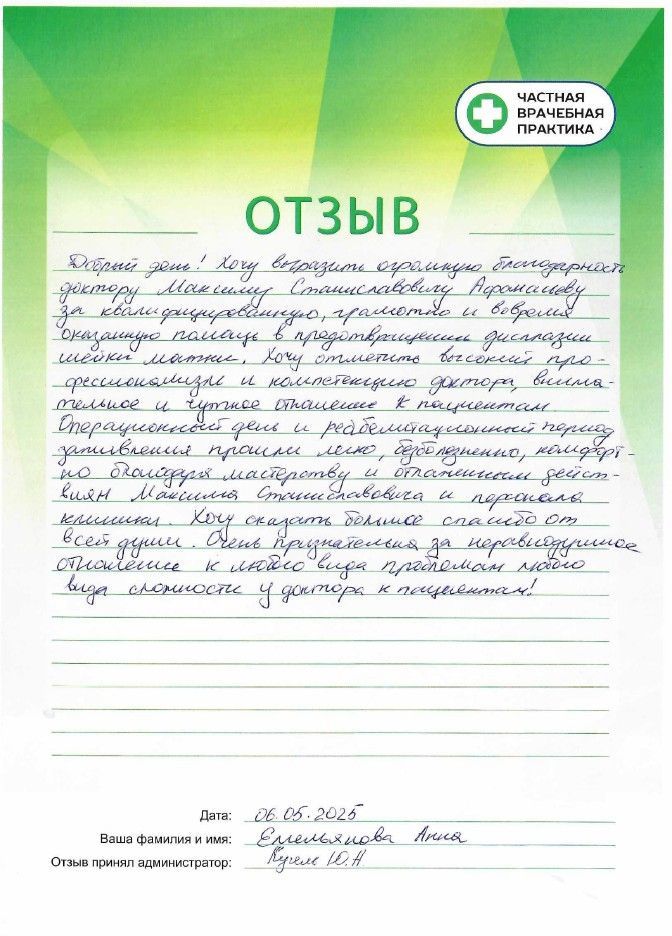 ЧАСТНАЯ
ВРАЧЕБНАЯ
ПРАКТИКА
ОТЗЫВ
Добрый день! Хочу выразить огромную благодарность
доктору Максиму Станиславовичу Афанасьеву
за квалифицированную, грамотно и вовремя
оказанную помощь в предотвращении дисплазии
шейки матки. Хочу отметить высокий про-
фессионализм и компетенцию доктора, внима-
тельное и чуткое отношение к пациентам.
Операционный день и реабилитационный период
заживления прошли легко, безболезненно, комфорт-
но благодаря мастерству и отлаженным дейст-
виям Максима Станиславовича и персонала
клиники. Хочу сказать большое спасибо от
всей души. Очень признательна за неравнодушное
отношение к любого вида проблемам любого
вида сложности у доктора к пациентам!
Дата: 06.05.2025
Ваша фамилия и имя: Емельянова Анна
Отзыв принял администратор: Ю.Н